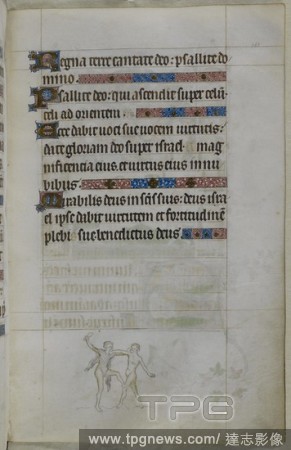 Regna terre cantate deo: psallite do
mino.
Psallite deo: qui ascendit super celum
celi ad orientem.
Ecce dabit voci sue vocem virtutis:
date gloriam deo super israel mag
nificencia eius. et virtus eius in nu
bibus.
Mirabilis deus in scis suis: deus isra
el ipse dabit virtutem et fortitudinem
plebi sue benedictus deus.
TPG
www.tpgnews.com / 達志影像